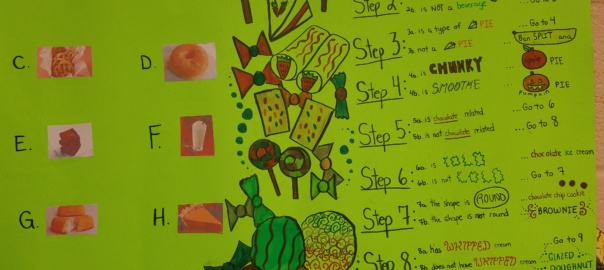 Step 2:
2b. is NOT a beverage
C.
D.
Step 3:
3a. is a type of PIE
... Go to 4
3b. not a PIE
Ban SPLIT and
Step 4:
4a. is CHUNKY
apple PIE
4b. is SMOOTHE
pumpkin PIE
E.
F.
Step 5:
5a. is chocolate related
... Go to 6
5b. is not chocolate related
... Go to 8
Step 6:
6a. is COLD
... chocolate ice cream
6b. is not COLD
... Go to 7
G.
H.
Step 7:
7a. the shape is ROUND
... chocolate chip cookie
7b. the shape is not round
BROWNIE
Step 8:
8a. has WHIPPED cream
... Go to 9
8b. does not have WHIPPED cream
GLAZED DOUGHNUT